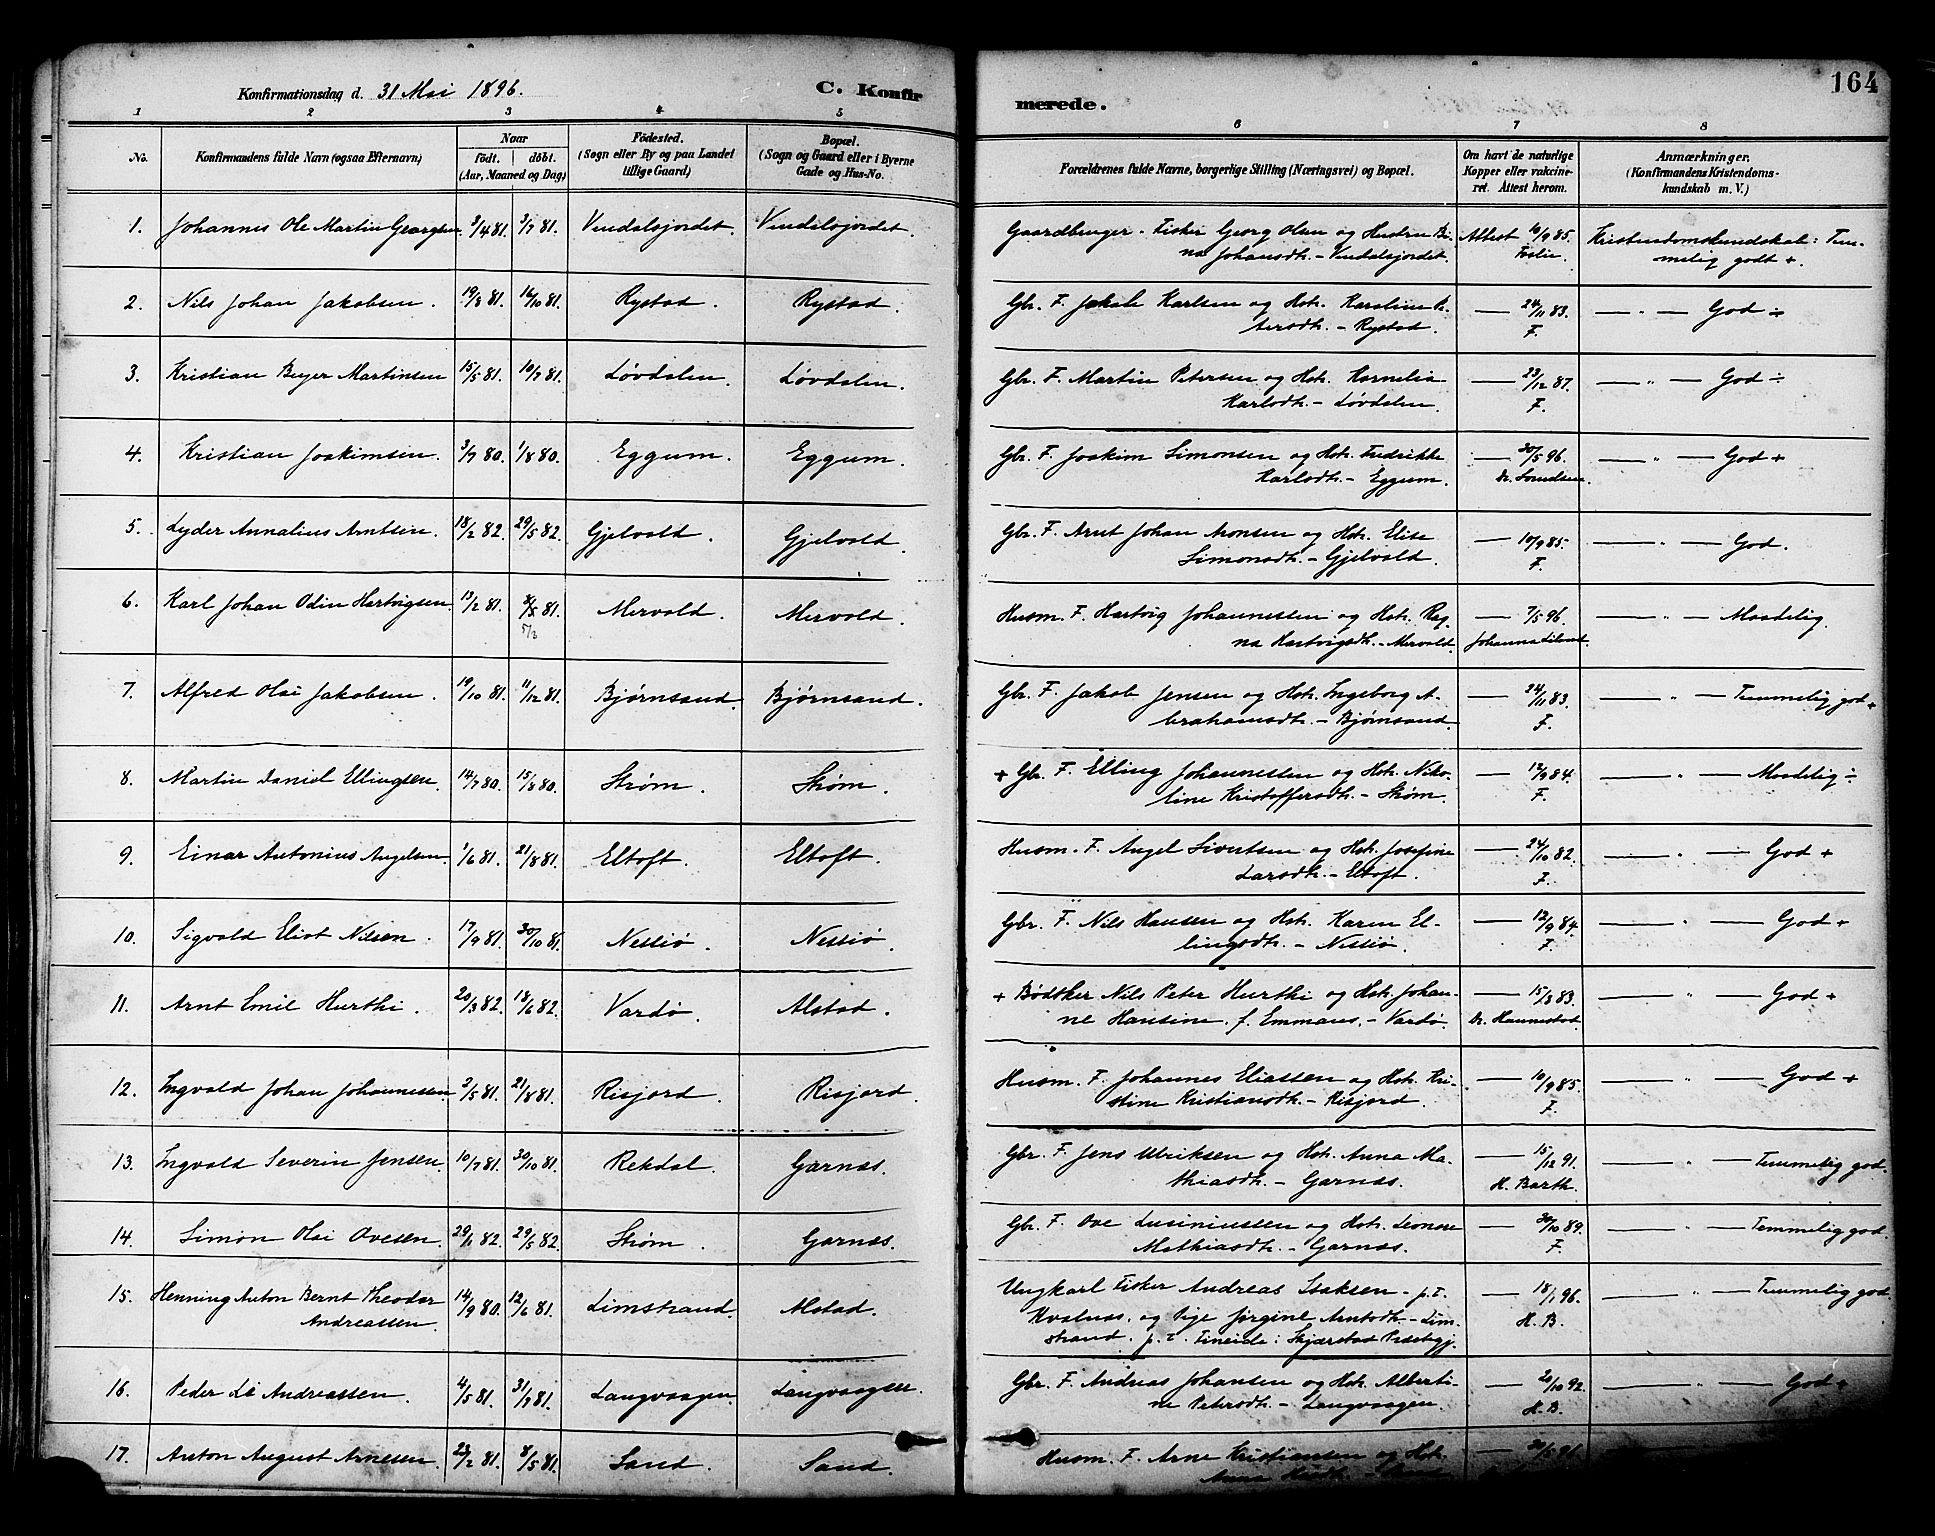 164
Konfirmationsdag d. 31 Mai 1896. C. Konfirmerede.
1 2 3 4 5 6 7 8
No. | Konfirmandens fulde Navn (ogsaa Efternavn) | Naar födt. döbt. (Aar, Maaned og Dag) | Födested. (Sogn eller By og paa Landet tillige Gaard) | Bopæl. (Sogn og Gaard eller i Byerne Gade og Hus-No. | Forældrenes fulde Navne, borgerlige Stilling (Næringsvei) og Bopæl. | Om havt de naturlige Kopper eller vakcineret. Attest herom. | Anmærkninger. (Konfirmandens Kristendomskundskab m. V.)
1. Johannes Ole Martin Georgsen. 2/4 81. 3/7 81. Vendalsjordet. Vendalsjordet. Gaardbruger - Fisker Georg Olsen og Hustru Bi- Attest 10/9 85. Kristendomskundskab: Tem-
na Johansdtr. - Vendalsjordet. melig godt +.
2. Nils Johan Jakobsen. 19/8 81. 16/10 81. Rystad. Rystad. Gbr. F. Jakob Karlsen og Hstr. Karoline Pe- — 24/11 83. — " — God ÷
tersdtr. - Rystad. F.
3. Kristian Beyer Martinsen 15/5 81. 10/7 81. Løvdalen. Løvdalen. Gbr. F. Martin Petersen og Hstr. Kornelia — 23/12 87. — " — God ÷
Karlsdtr. - Løvdalen. F.
4. Kristian Joakimsen. 3/7 80. 1/8 80. Eggum. Eggum. Gbr. F. Joakim Simonsen og Hstr. Fredrikke — 30/5 96. — " — God +
Karlsdtr. - Eggum. Dr.
5. Lyder Annalius Arntsen. 18/2 82. 29/5 82. Gjelvold. Gjelvold. Gbr. F. Arnt Johan Monsen og Hstr. Elise — 10/9 85. — " — God.
Simonsdtr. - Gjelvold. F.
6. Karl Johan Odin Hartvigsen. 13/2 81. 81. Mervold. Mervold. Husm. F. Hartvig Johannessen og Hstr. Rag- — 7/5 96. — " — Maadelig.
na Hartvigsdtr. - Mervold. Johanna
7. Alfred Olai Jakobsen. 19/10 81. 11/12 81. Bjørnsand. Bjørnsand. Gbr. F. Jakob Jensen og Hstr. Ingeborg A- — 24/11 83. — " — Temmelig god +
brahamsdtr. - Bjørnsand. F.
8. Martin Daniel Ellingsen 14/7 80. 15/8 80. Strøm. Strøm. + Gbr. F. Elling Johannessen og Hstr. Niko- — 12/9 84. — " — Maadelig ÷
line Kristoffersdtr. - Strøm. F.
9. Einar Antonius Angelsen 1/6 81. 21/8 81. Eltoft. Eltoft. Husm. F. Angel Sivertsen og Hstr. Josefine — 24/10 82. — " — God +
Larsdtr. - Eltoft. F.
10. Sigvald Eliot Nilsen. 17/9 81. 30/10 81. Nessiø. Nessiø. Gbr. F. Nils Hansen og Hstr. Karen El- — 12/9 84. — " — God +
lingsdtr. - Nessiø. F.
11. Arnt Emil Hurthi. 20/3 82. 18/6 82. Vardø. Alstad. + Bødtker Nils Peter Hurthi og Hstr. Johan- — 15/3 83. — " — God +
ne Hansine f. Emmaus. - Vardø. Dr. Hannestad.
12. Ingvald Johan Johannessen 2/5 81. 21/8 81. Risjord. Risjord. Husm. F. Johannes Eliassen og Hstr. Kri- — 10/9 85. — " — God +
stine Kristiansdtr. - Risjord. F.
13. Ingvald Severin Jensen. 10/7 81. 30/10 81. Rekdal. Garnæs. Gbr. F. Jens Ulriksen og Hstr. Anna Ma- — 15/12 91. — " — Temmelig god.
thiasdtr. - Garnæs. H. Barth.
14. Simon Olai Ovesen. 29/1 82. 29/5 82. Strøm. Garnæs. Gbr. F. Ove Lusiniussen og Hstr. Leonore — 30/10 89. — " — Temmelig god.
Mathiasdtr. - Garnæs. F.
15. Henning Anton Bernt Theodor 14/9 80. 12/6 81. Limstrand. Alstad. Ungkarl Fisker Andreas Isaksen - p.t. — 18/1 96. — " — Temmelig god
Andreassen. Hvalnæs, og Pige Jørgine Arntsdtr. - Lim- H. B.
strand. p.t. Fineide: Skjærstad Præstegj.
16. Peder Li Andreassen. 4/5 81. 31/7 81. Langvaagen. Langvaagen. Gbr. F. Andreas Johansen og Hstr. Alberti- — 20/10 92. — " — God +
ne Petersdtr. - Langvaagen. H. B.
17. Anton August Arnesen. 23/2 81. 8/5 81. Sand. Sand. Husm. F. Arne Kristiansen og Hstr.
Anna